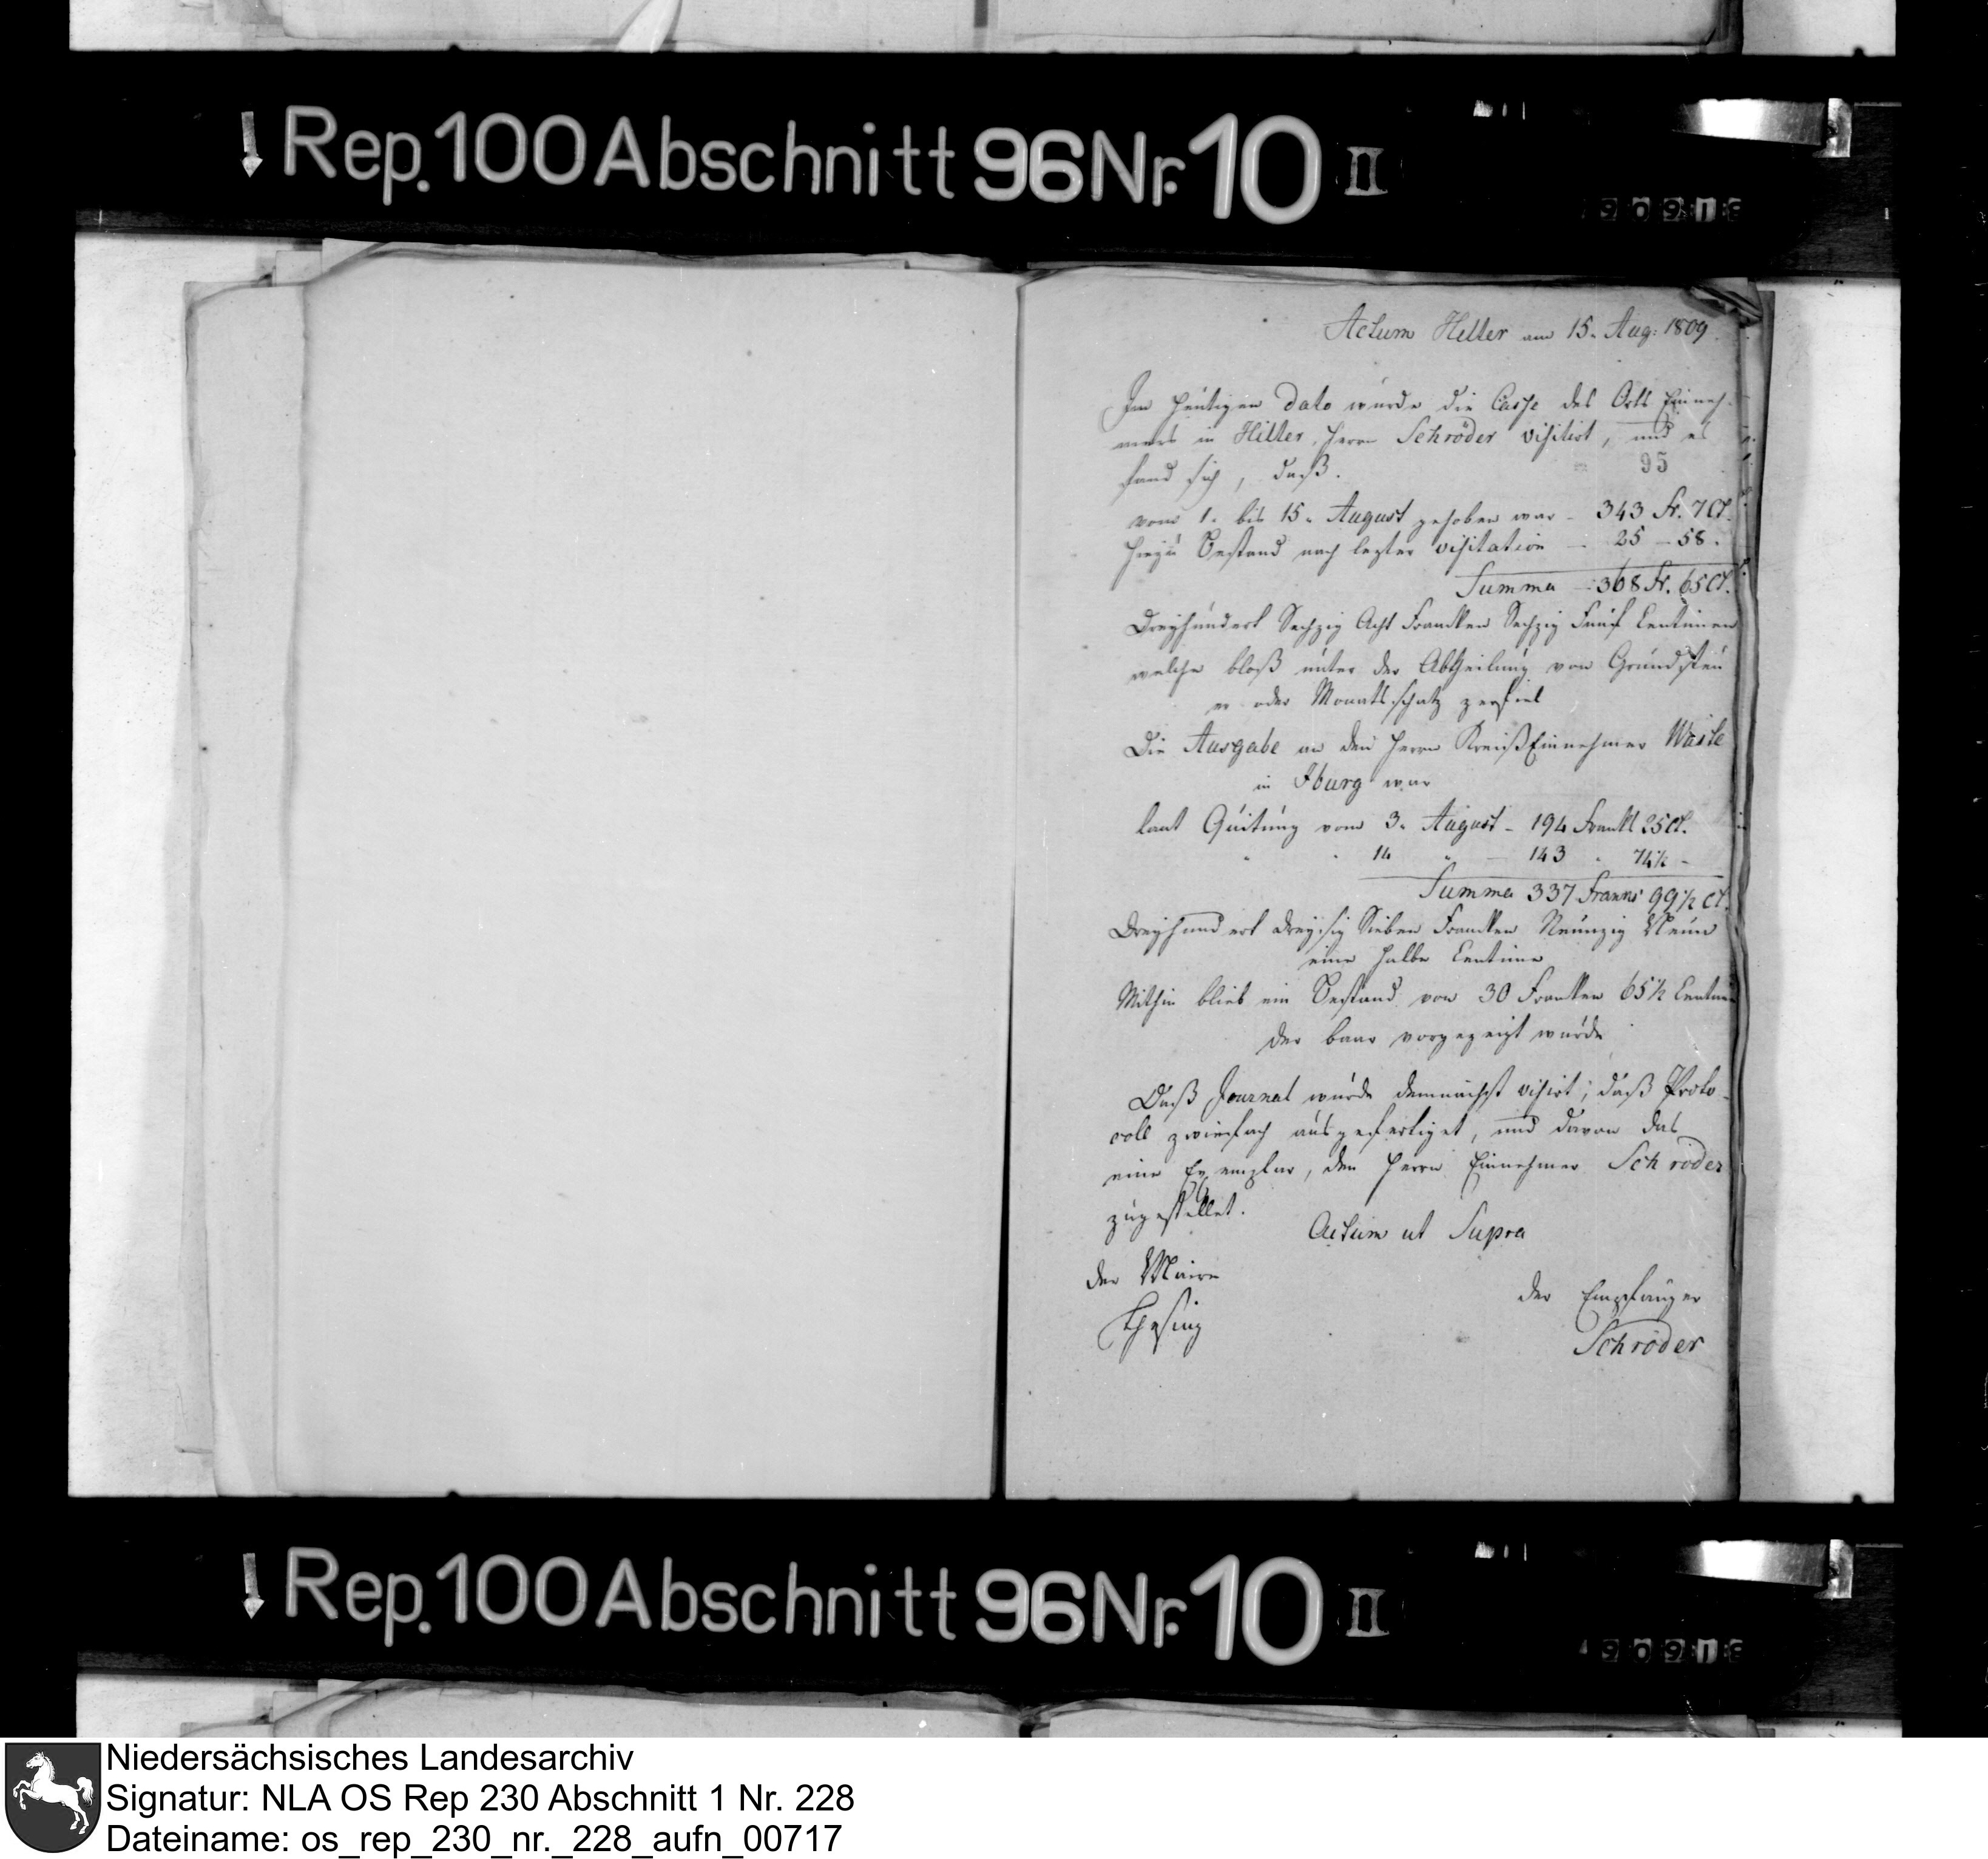 Rep. 100 Abschnitt 96 Nr. 10 II
Actum Hilter am 15. Aug: 1809.
Im heutigen Dato wurde die Casse des Orts Einneh-
mers in Hilter, Herrn Schröder visitirt, und es
95
fand sich, daß.
vom 1. bis 15. August gehoben war - 343 Fr. 7 Ct.
hiezu Bestand nach lezter visitation - 25 - 58.
Summa - 368 Fr. 65 Ct.
Dreyhundert Sechzig Acht Francken Sechzig Fünf Centimen
welche bloß unter der Abtheilung von Grundsteu
er oder Monatsschatz zerfiel
Die Ausgabe an den Herrn Kreiß Einnehmer
in Iburg war
laut Quitung vom 3. August - 194 Frank 25 Ct.
" " 14 " - 143 " 74½ -
Summa 337 99½ Ct.
Dreyhundert dreysig Sieben Francken Neunzig Neun
eine halbe Centime
Mithin blieb ein Bestand von 30 Franken 65½
der baar vorgezeigt wurde
Daß Journal wurde demnächst visirt; daß Proto-
coll zwiefach ausgefertiget, und davon das
eine Exemplar, den Herrn Einnehmer Schröder
zugestellet.
Actum ut Supra
der Maire
der Empfänger
Schröder
Rep. 100 Abschnitt 96 Nr. 10 II
Niedersächsisches Landesarchiv
Signatur: NLA OS Rep 230 Abschnitt 1 Nr. 228
Dateiname: os_rep_230_nr._228_aufn_00717